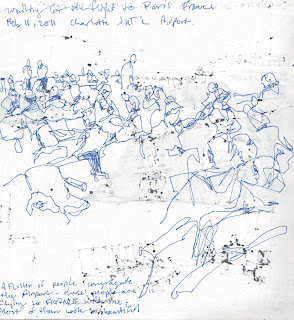 waiting for the flight to Paris France
Feb 11, 2011 Charlotte INT'L Airport.
A flutter of people congregate
the Airport - these people are
flying to FRANCE with me &
most of them look so beautiful